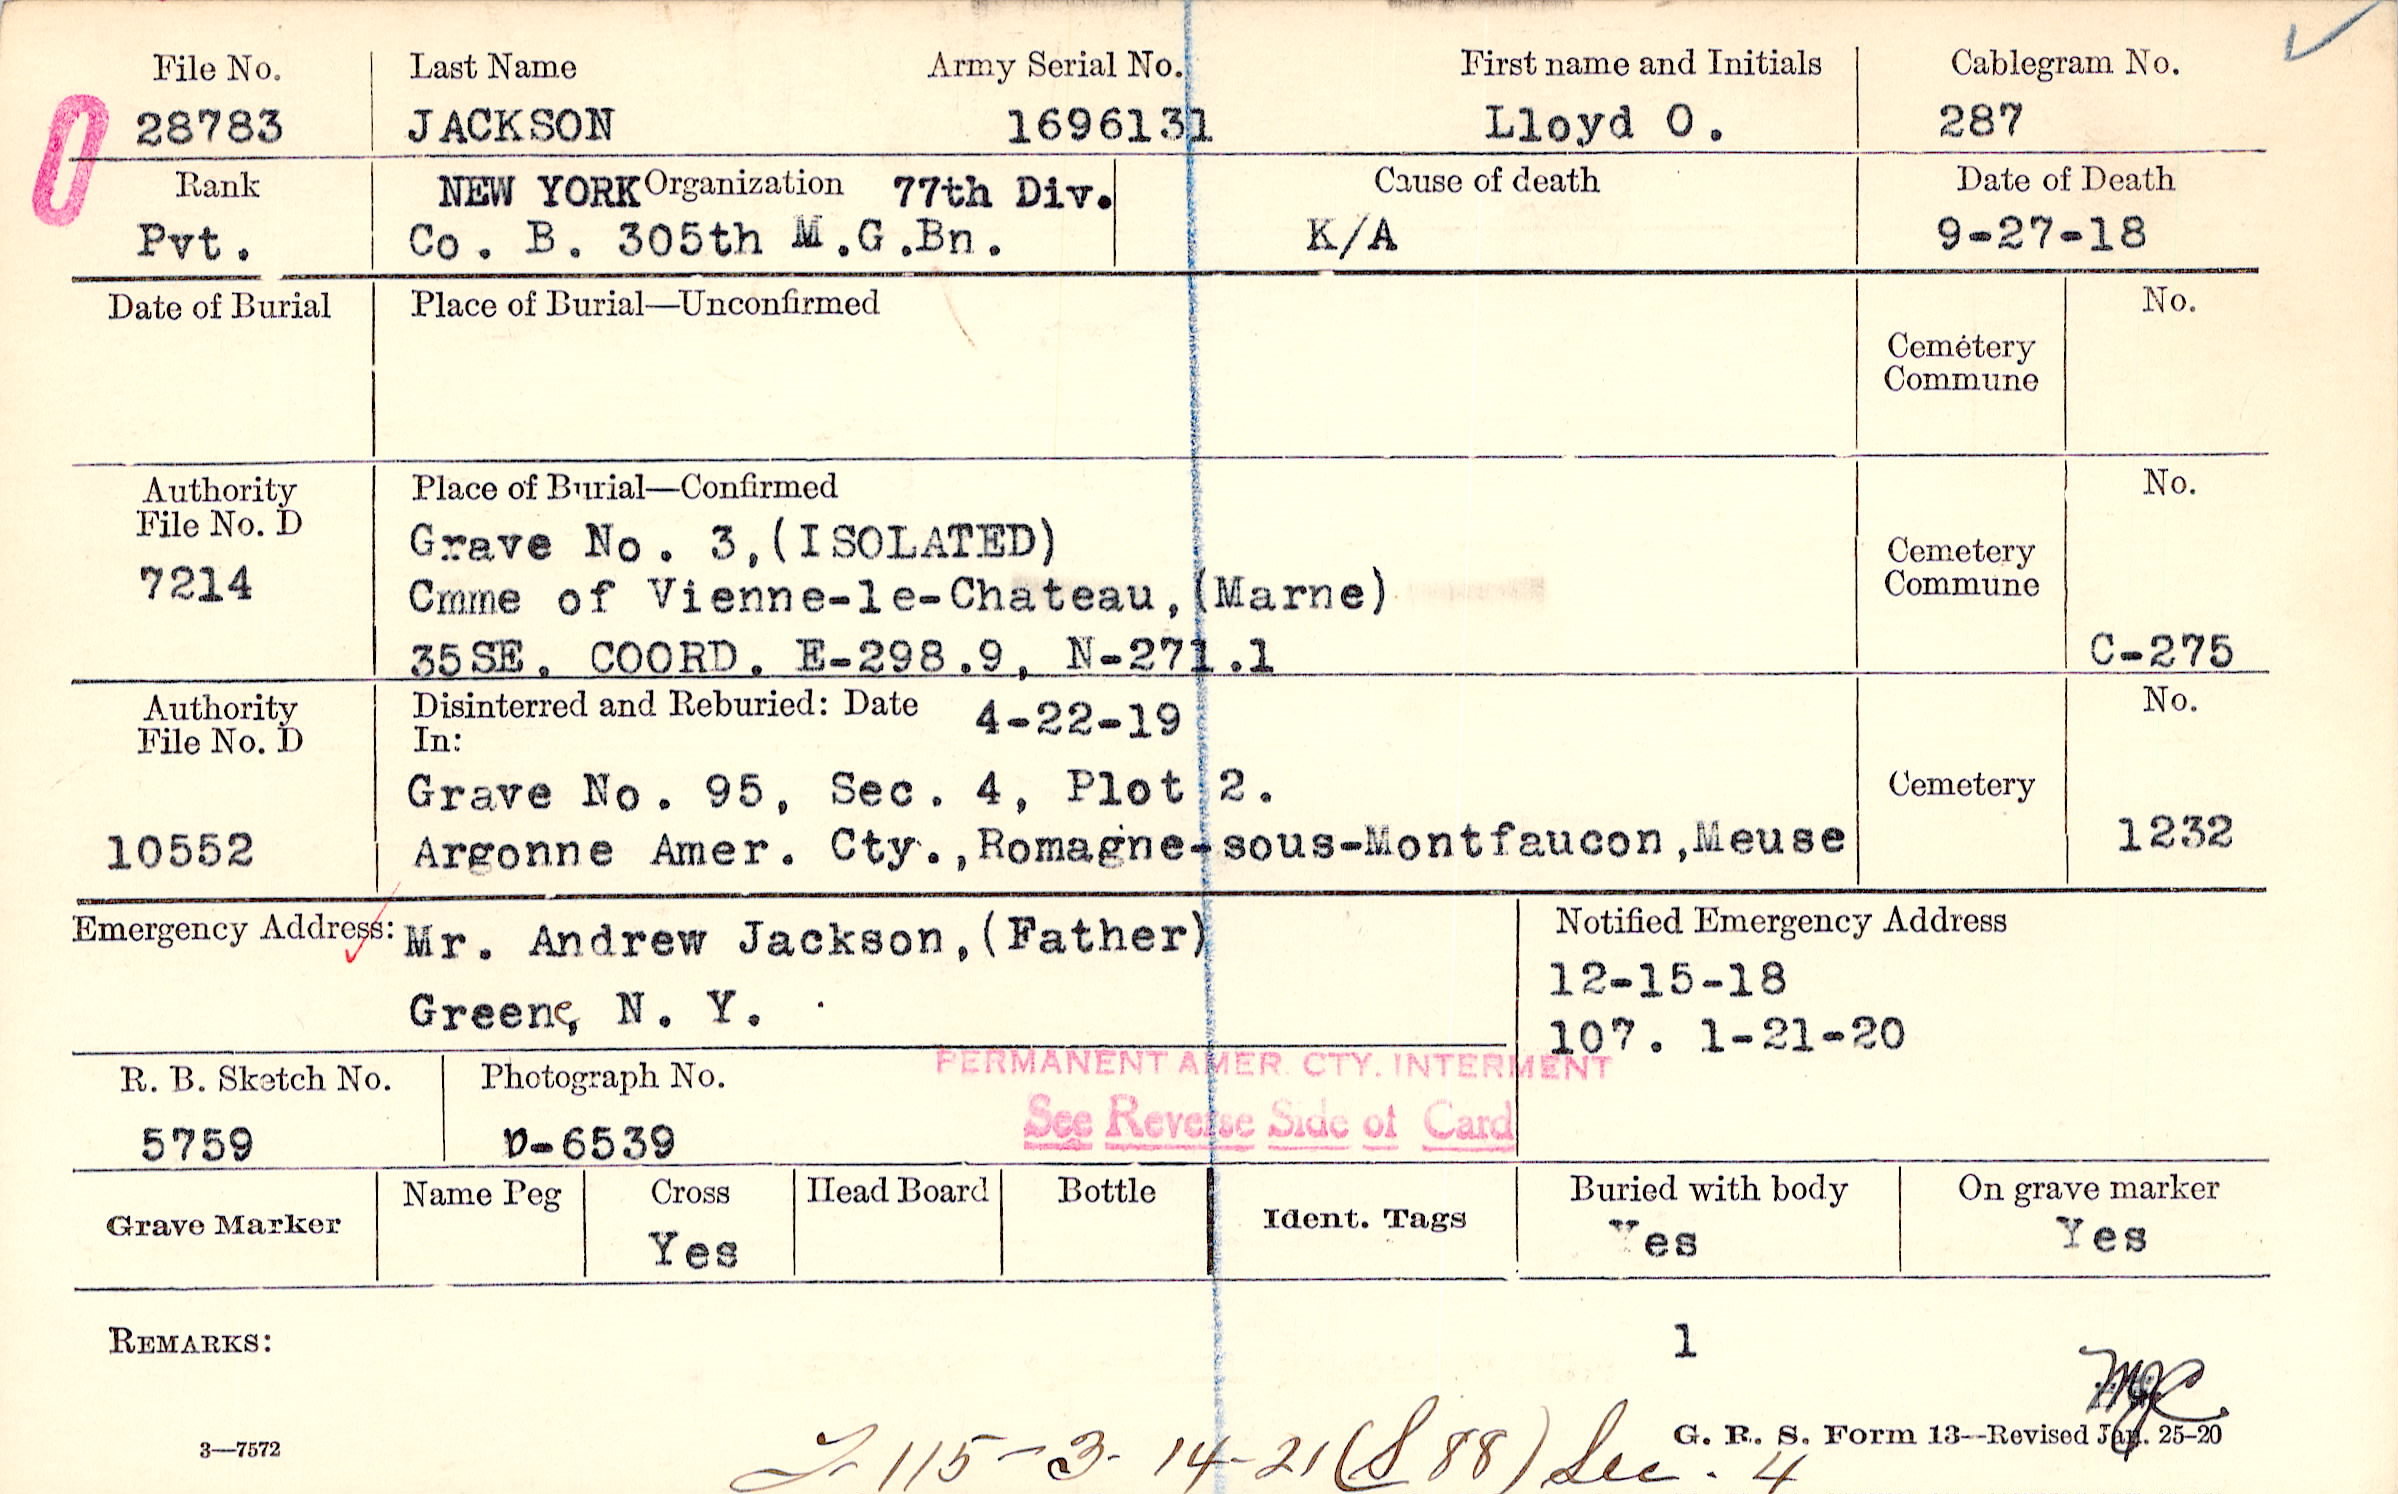 File No. Last Name Army Serial No. First name and Initials Cablegram No.
28783 JACKSON 1696131 Lloyd O. 287
Rank NEW YORK Organization 77th Div. Cause of death Date of Death
Pvt. Co. B. 305th M.G.Bn. K/A 9-27-18
Date of Burial Place of Burial—Unconfirmed No.
Cemetery
Commune
Authority Place of Burial—Confirmed No.
File No. D Grave No. 3,(ISOLATED)
Cemetery
7214 Cmme of Vienne-le-Chateau,(Marne) Commune
35SE. COORD. E-298.9, N-271.1 C-275
Authority Disinterred and Reburied: Date 4-22-19 No.
File No. D In:
Grave No. 95, Sec. 4, Plot 2. Cemetery
10552 Argonne Amer. Cty.,Romagne-sous-Montfaucon,Meuse 1232
Emergency Address: Mr. Andrew Jackson,(Father) Notified Emergency Address
12-15-18
Greene, N. Y. 107. 1-21-20
PERMANENT AMER. CTY. INTERMENT
R. B. Sketch No. Photograph No. See Reverse Side of Card
5759 D-6539
Grave Marker Name Peg Cross Head Board Bottle Ident. Tags Buried with body On grave marker
Yes Yes Yes
REMARKS: 1
3—7572 G. R. S. Form 13—Revised Jan. 25-20
115-3-14-21 (S 88) Sec. 4